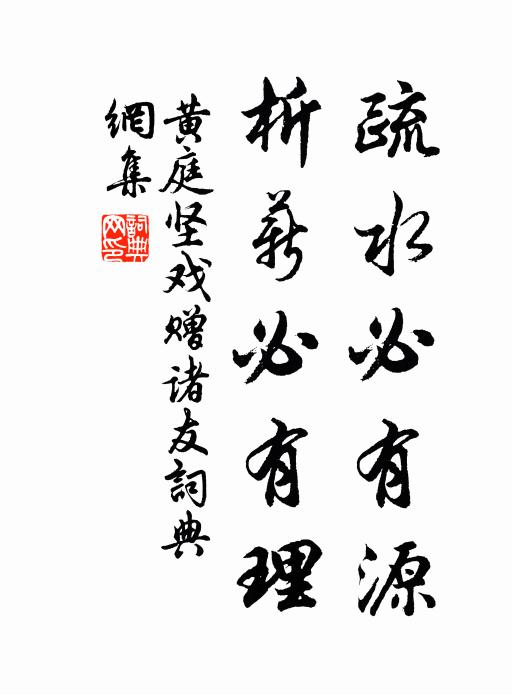 疏水必有源
析薪必有理
黄庭坚戏赠诸友詞典
網集
詞典网印